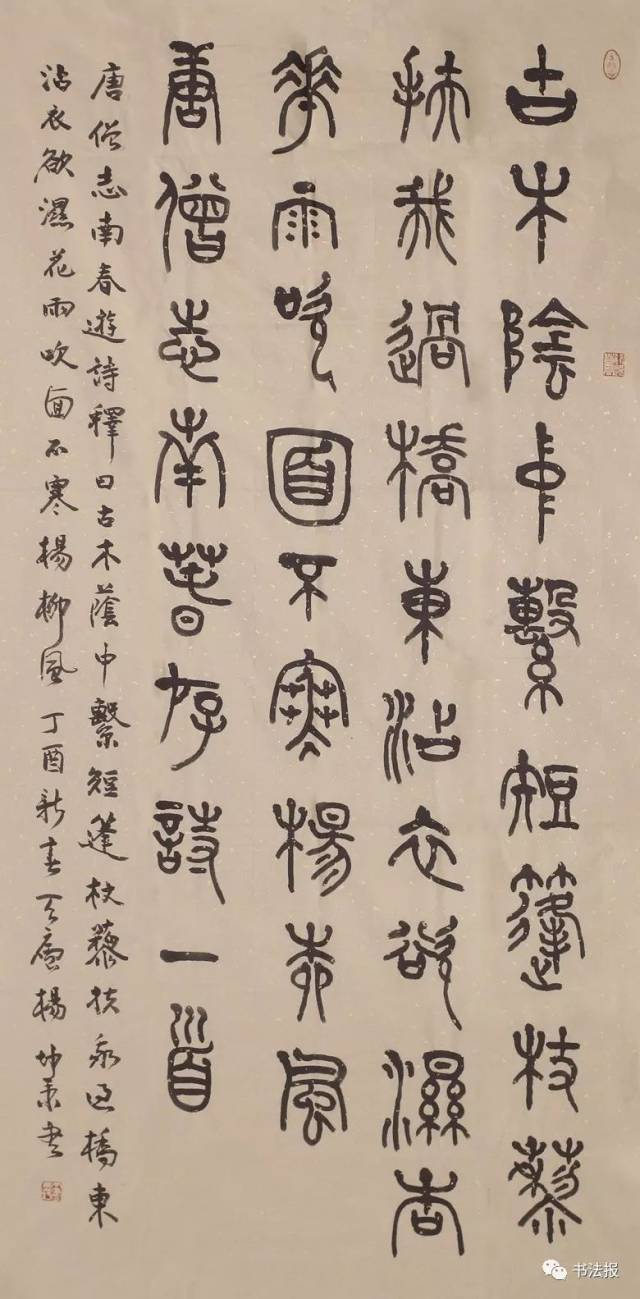 古木陰中繫短篷杖藜
扶我過橋東沾衣欲濕杏
華雨吹面不寒楊柳風
唐僧志南春游詩一首
唐僧志南春遊詩釋曰古木蔭中繫短蓬杖藜扶我過橋東
沾衣欲濕花雨吹面不寒楊柳風丁酉新春楊書
书法报